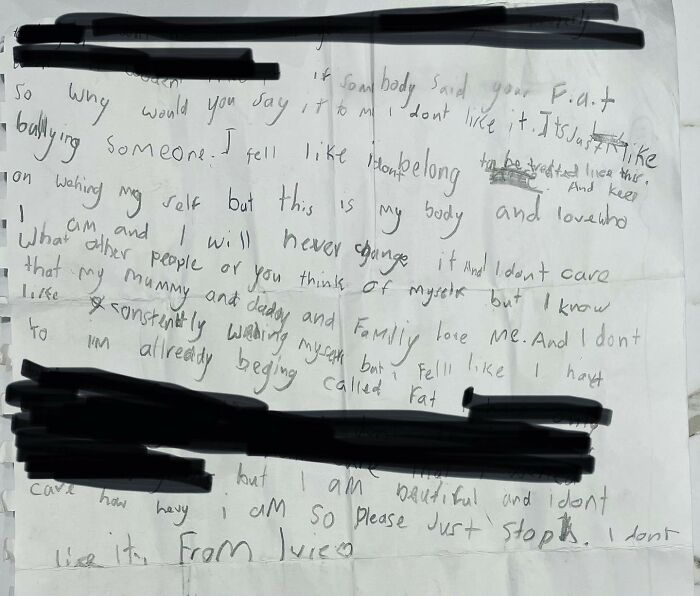 if sombody said your F.a.t
so why would you say it to m i dont like it. Its Just like
bullying someone. I fell like i dont belong to be treated like this.
And keep
on wahing my self but this is my body and love who
I am and I will never change it And I dont care
What other people or you think of myself but I know
that my mummy and daddy and Family love me. And I dont
like constently wahing myself but i fell like I havt
to I'm allready beging called Fat
but I am beautiful and i dont
care how hevy i am so please Just stop. I dont
like it. From